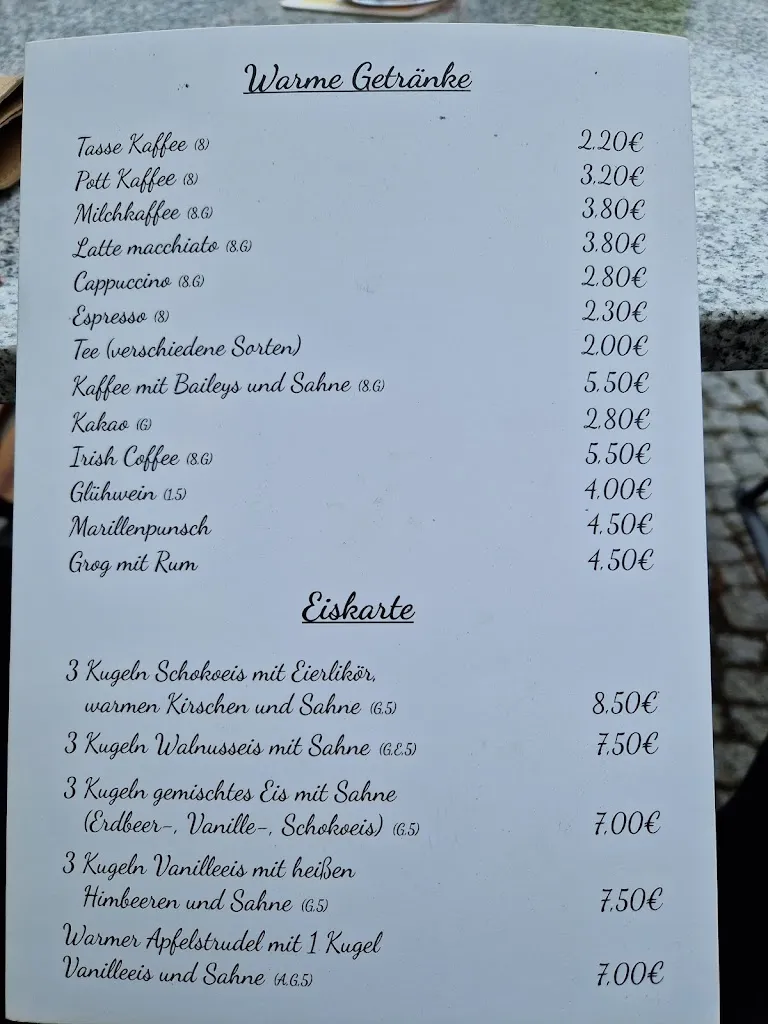 Warme Getränke
Tasse Kaffee (8) 2,20€
Pott Kaffee (8) 3,20€
Milchkaffee (8,G) 3,80€
Latte macchiato (8,G) 3,80€
Cappuccino (8,G) 2,80€
Espresso (8) 2,30€
Tee (verschiedene Sorten) 2,00€
Kaffee mit Baileys und Sahne (8,G) 5,50€
Kakao (G) 2,80€
Irish Coffee (8,G) 5,50€
Glühwein (1,5) 4,00€
Marillenpunsch 4,50€
Grog mit Rum 4,50€
Eiskarte
3 Kugeln Schokoeis mit Eierlikör,
warmen Kirschen und Sahne (G,5) 8,50€
3 Kugeln Walnusseis mit Sahne (G,E,5) 7,50€
3 Kugeln gemischtes Eis mit Sahne
(Erdbeer-, Vanille-, Schokoeis) (G,5) 7,00€
3 Kugeln Vanilleeis mit heißen
Himbeeren und Sahne (G,5) 7,50€
Warmer Apfelstrudel mit 1 Kugel
Vanilleeis und Sahne (A,G,5) 7,00€